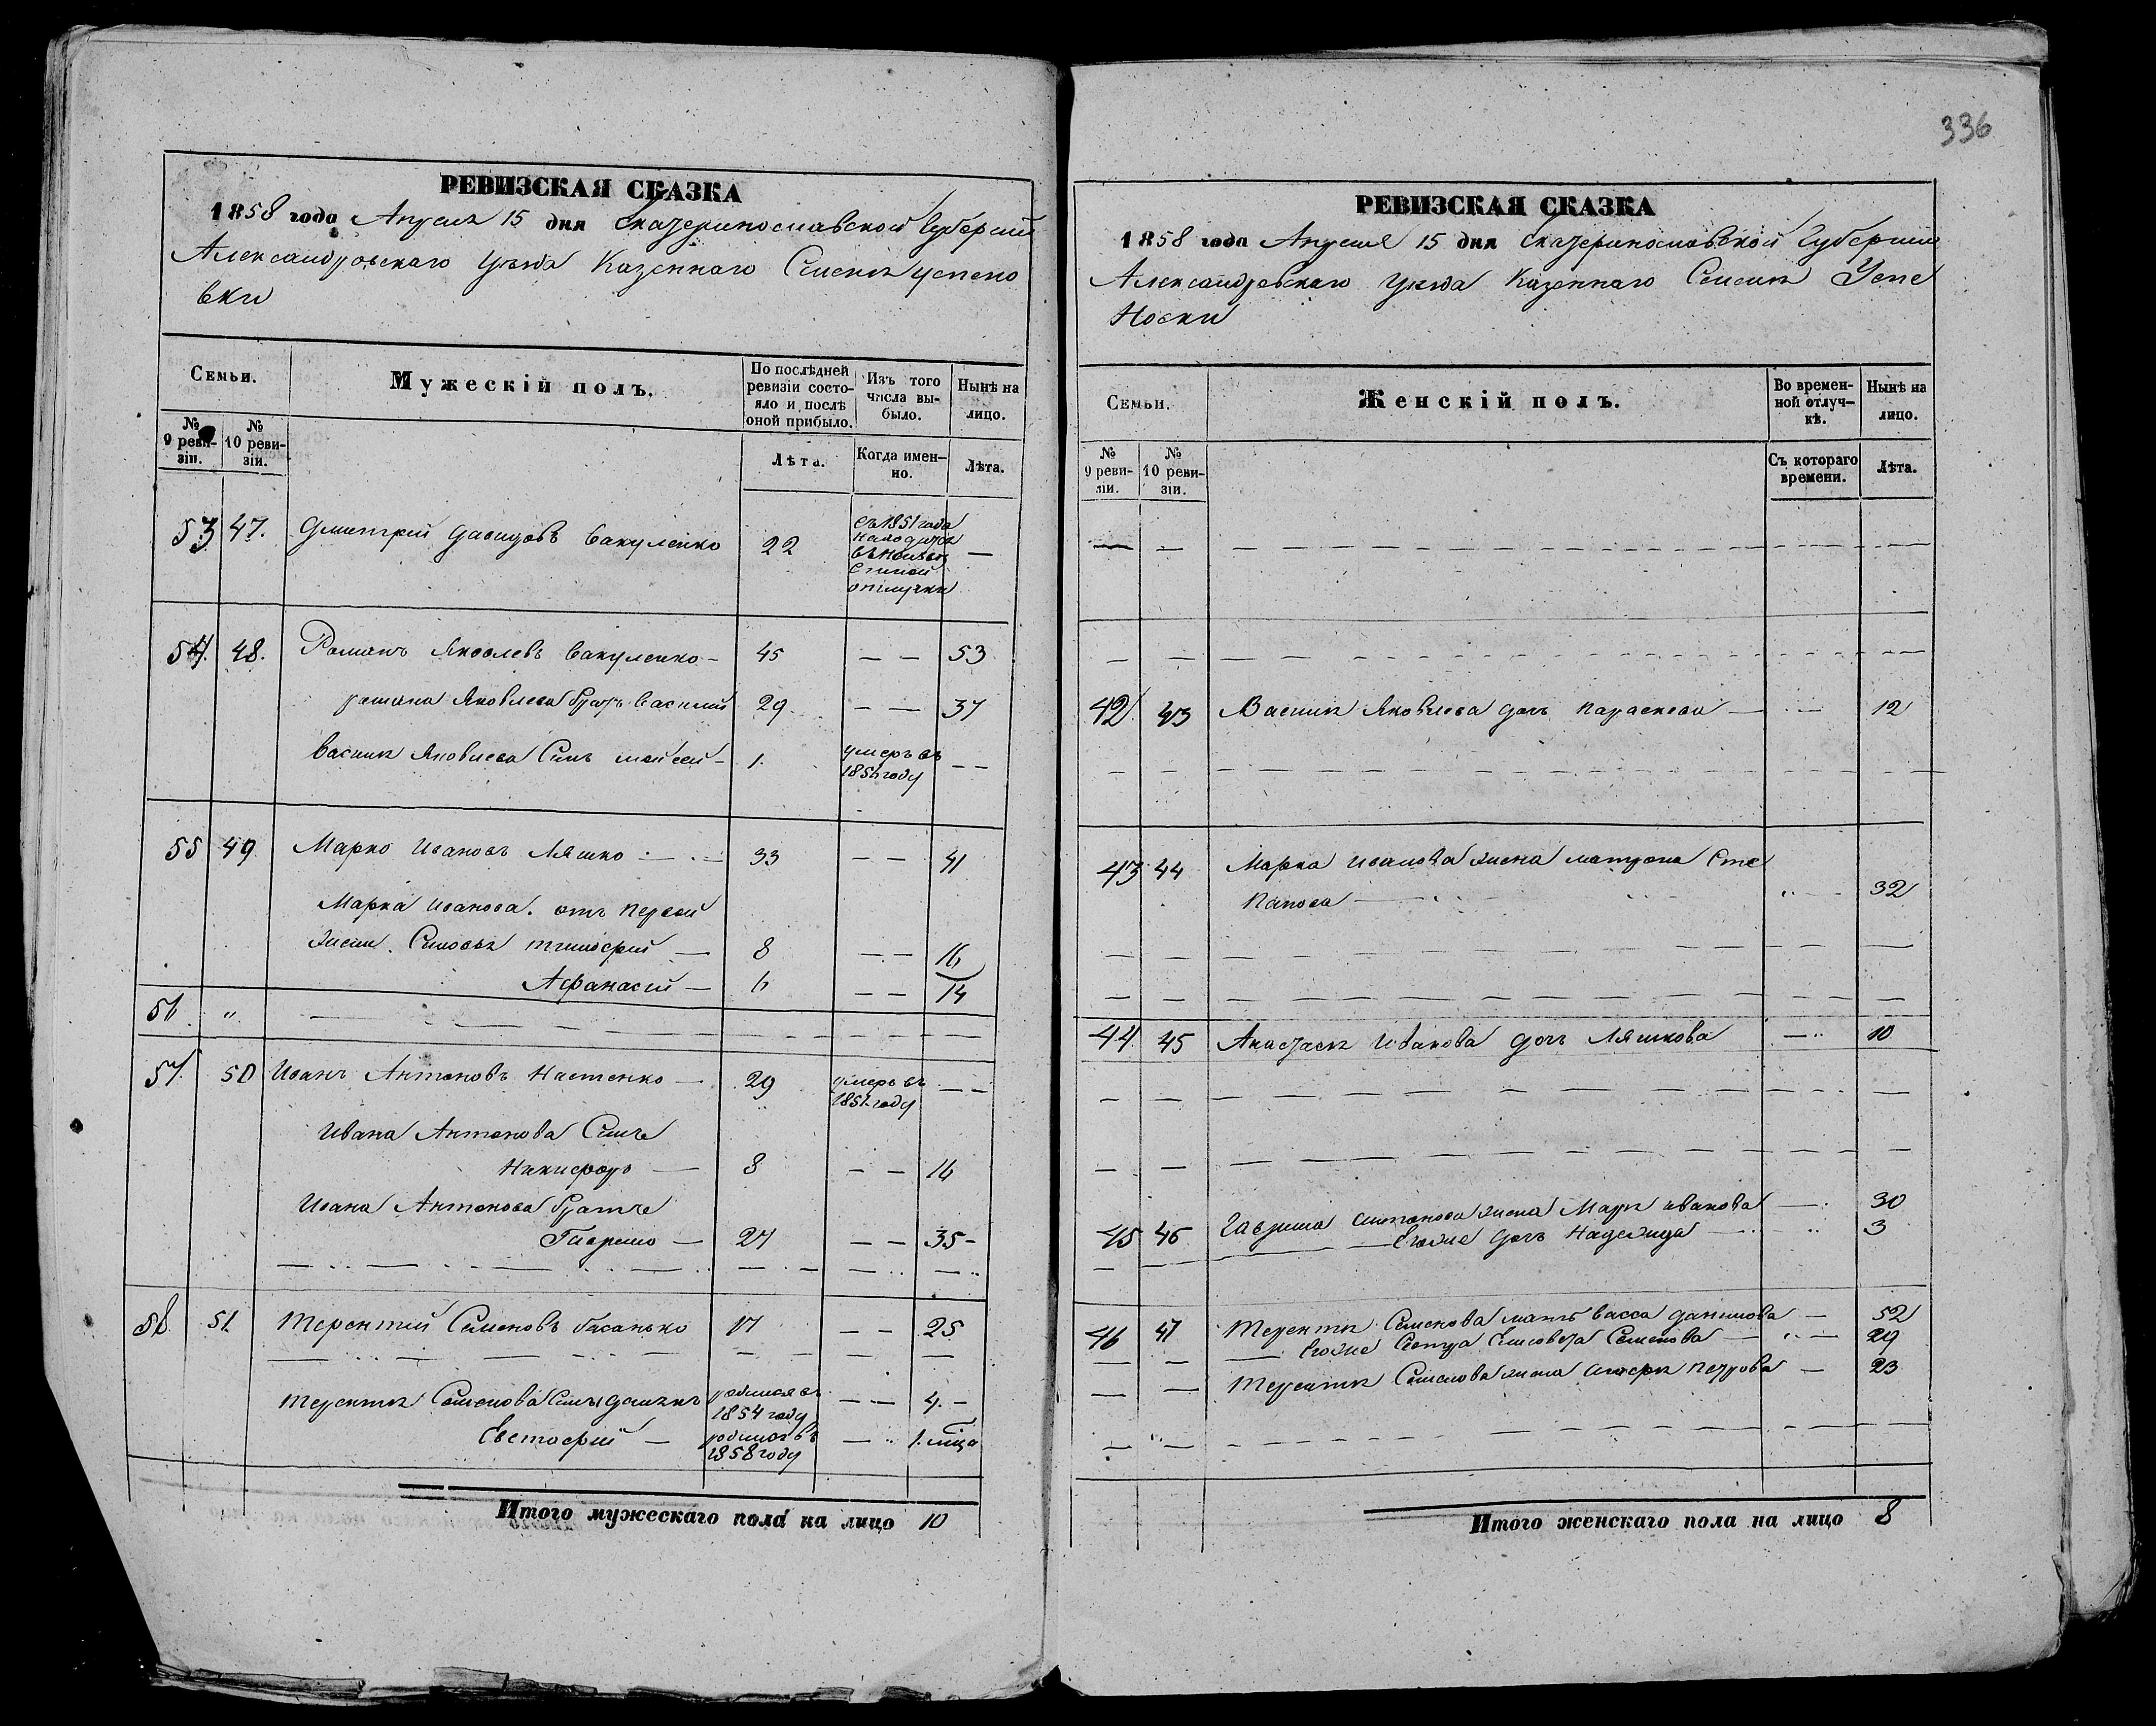 336
РЕВИЗСКАЯ СКАЗКА
1858 года Апреля 15 дня Екатеринославской Губернии
Александровскаго Уезда Казеннаго Селенія Успено
вки
Семьи.
Мужескій полъ.
По послѣдней ревизіи состо-яло и послѣ оной прибыло.
Изъ того числа вы-было.
Нынѣ на лицо.
№ 9 реви-зіи.
№ 10 реви-зіи.
Лѣта.
Когда имен-но.
Лѣта.
53 47. Дмитрий Давидовъ Вакуленко 22 съ 1851 года находится въ отлучки —
54. 48. Романъ Яковлевъ Вакуленко - 45 — — 53
Романа Яковлева братъ Василий 29 — — 37
Василя Яковлева Сынъ Мойсей - 1. умеръ въ 1854 году — —
55 49 Марко Ивановъ Ляшко 33 — — 41
Марка Иванова. отъ первой
жены. Сыновья Тимофей — 8 — — 16
Афанасий — 6 — — 14
56 "
57. 50 Иванъ Антоновъ Настенко — 29 умеръ въ 1851 году — —
Ивана Антонова Сынъ
Никифоръ — 8 — — 16
Ивана Антонова братъ
Гаврило — 27 — — 35 -
58. 51. Терентий Семеновъ Басанько 17 — — 25
Терентія Семенова Сыны Демянъ родился въ 1854 году — — 4. -
Евстафий — родился въ 1858 году — 1. мѣся
Итого мужескаго пола на лицо 10
РЕВИЗСКАЯ СКАЗКА
1858 года Апреля 15 дня Екатеринославской Губернии
Александровскаго Уезда Казеннаго Селенія Успе
Новки
Семьи.
Женскій полъ.
Во времен-ной отлуч-кѣ.
Нынѣ на лицо.
№ 9 реви-зіи.
№ 10 реви-зіи.
Съ котораго времени.
Лѣта.
42. 43 Василя Яковлева дочь Параскева — 12
43 44 Марка Иванова жена Матрона Сте
панова — 32
44 45 Анастасія Иванова дочь Ляшкова — 10
45 46 Гаврила Антонова жена Марія Иванова — 30
Егоже дочь Надежда — 3
46 47 Терентія Семенова мать Васса Данилова — 52
Егоже Сестра Елисовета Семенова — 29
Терентія Семенова жена Петрова — 23
Итого женскаго пола на лицо 8